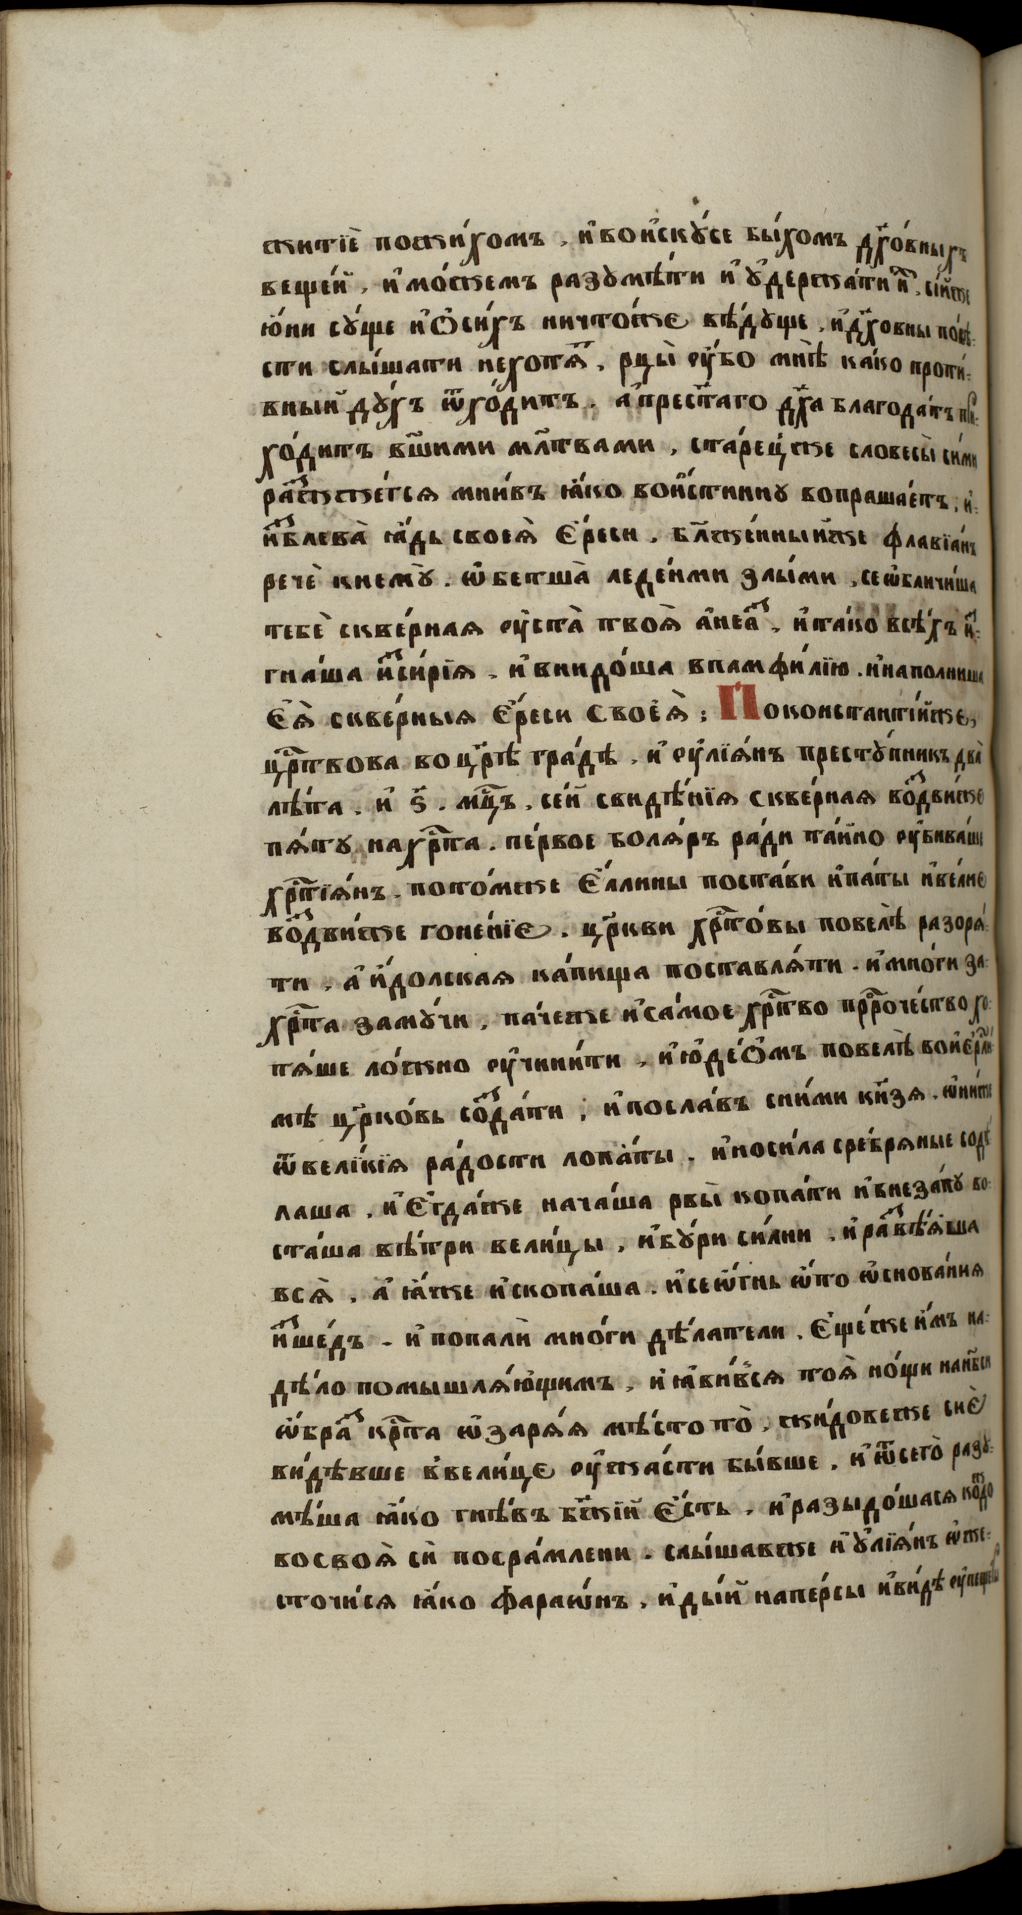 житїѐ пожи́хомъ , и҆ воискꙋ́се бы́хомъ дꙋ҃хо́вныхъ
веще́й , и҆ мо́жемъ разꙋмѣ́ти и҆ ᲂу҆держа́ти и҆̀ , сі́иже
ю҆́ни сꙋ́ще и҆ ѡ҆ си́хъ ничто́же вѣ́дꙋще , и҆ дх҃о́вны по́вѣ-
сти слы́шати нехотѧ̀т , рцы̀ ᲂу҆́бо мнѣ̀ ка́ко проти́-
вныи дꙋ́хъ ѿхо́дитъ , а҆ прест҃а́го дх҃а благода́ть при-
хо́дитъ ва́шими мл҃твами , ста́рецже словесы̀ си́ми
разжже́гсѧ мни́въ ꙗ҆́ко вои́стиннꙋ вопраша́етъ , и҆
и҆зблева̀ ꙗ҆́дь своеѧ̀ є҆́реси , бл҃же́нныиже флавїа́нъ
речѐ кнемꙋ̀ . ѡ҆бетша̀ леде́нми злы́ми , се ѡ҆бличи́ша
тебѐ скве́рнаѧ ᲂу҆ста̀ твоѧ̀ а҆не аз , и҆ та́ко всѣ́хъ и҆з-
гна́ша и҆зси́рїѧ , и҆ внидо́ша впамфи́лїю . и҆ наполниша
є҆ѧ̀ скве́рныѧ є҆́реси своеѧ̀ : Поконстантї́нѣже ,
цр҃ствова во цр҃ѣ гра́дѣ , и҆ ᲂу҆лїѧ́нъ престꙋ́пникъ два̀
лѣ́та , и҆ ѕ҃ . мц҃ъ , се́й свидѣ́нїѧ скве́рнаѧ воздви́же
пѧ́тꙋ на хр҃та̀ . пе́рвое болѧ́ръ ра́ди та́йно ᲂу҆бива́ше
хр҃тїѧ́нъ . пото́мже є҆́ллины поста́ви и҆па́ты и҆ ве́лие
воздви́же гоне́нїе . цр҃кви хр҃то́вы повелѣ̀ разорѧ́-
ти , а҆ и҆́долскаѧ ка́пища поставлѧ́ти . и҆ мно́ги за-
хр҃та̀ замꙋ́чи , па́чеже и҆ са́мое хр҃то́во прⷪ҇ро́чество хо-
тѧ́ше ло́жно ᲂу҆чини́ти , и҆ ю҆де́ѡмъ повелѣ̀ во и҆ер҃ли-
мѣ цр҃ко́вь созда́ти , и҆ посла́въ сни́ми кн҃зѧ . ѡ҆ниже
ѿ вели́кїѧ ра́дости лопа́ты . и҆ носи́ла сре́брѧные содѣ-
лаша . и҆ є҆гда́же нача́ша рвы̀ копа́ти и҆ внеза́пꙋ во-
ста́ша вѣ́три вели́цы , и҆ бꙋ́ри си́лни . и҆ развѣ́ѧша
всѧ̀ , а҆ ꙗ҆́же и҆скопа́ша . и҆ се ѻ҆́гнь ѿто ѡ҆снова́ниѧ
и҆зше́дъ . и҆ попалѝ мно́ги дѣ́латели . є҆ще́же и҆̀мъ на-
дѣ́ло помышлѧ́ющимъ , и҆ ꙗ҆ви́всѧ тоѧ̀ но́щи нанб҃си
ѡ҆́браз кр҃та̀ ѡ҆зарѧ́ѧ мѣ́сто то̀ . жи́довеже сиѐ
ви́дѣвше ввели́це ᲂу҆́жасти бы́вше , и҆ ѿсего̀ разꙋ-
мѣ́ша ꙗ҆́ко гнѣ́въ бж҃їй є҆́сть , и҆ разыдо́шасѧ ко́ждо
во своѧ̀ сѝ посра́млени . слы́шавже и҆ ᲂу҆лїѧ́нъ ѡ҆же-
сточи́сѧ ꙗ҆́ко фараѡ́нъ , и҆ ды́й напе́рсы и҆ ви́дѣ